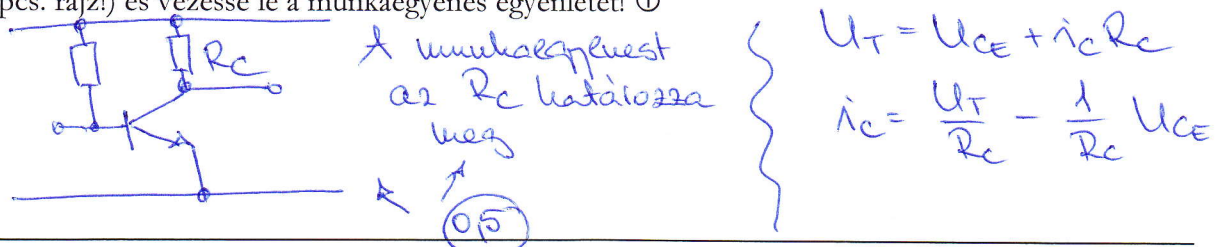 pcs. rajz!) és vezesse le a munkaegyenes egyenletét! ①
R_C
A munkaegyenest
az R_C határozza
meg
0,5
U_T = U_CE + i_C R_C
i_C = U_T/R_C - 1/R_C U_CE